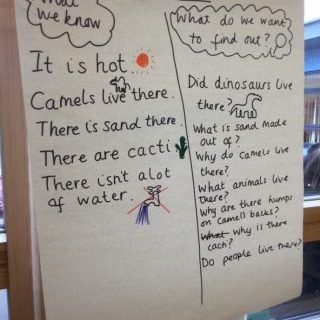 What
we know
It is hot.
Camels live there.
There is sand there.
There are cacti
There isn't alot
of water.
What do we want
to find out?
Did dinosaurs live
there?
What is sand made
out of?
Why do camels live
there?
What animals live
there?
Why are there humps
on camels backs?
What why is there
cacti?
Do people live there?